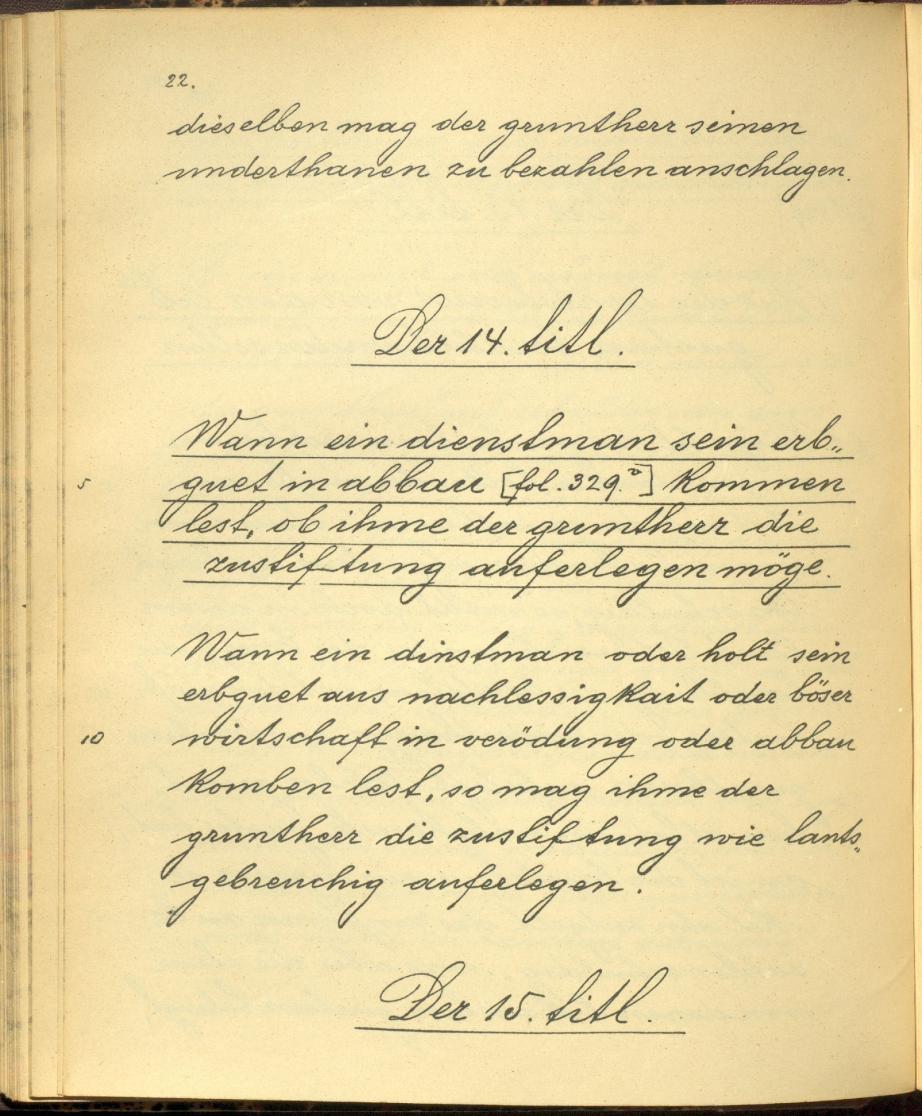 22.
dieselben mag der gruntherr seinen
underthanen zu bezahlen anschlagen.
Der 14. titl.
Wann ein dienstman sein erb„
5 guet in abbau [fol. 329.v] kommen
lest, ob ihme der gruntherr die
zustiftung auferlegen möge.
Wann ein dinstman oder holt sein
erbguet aus nachlessigkait oder böser
10 wirtschaft in verödung oder abbau
komben lest, so mag ihme der
gruntherr die zustiftung wie lants„
gebreuchig auferlegen.
Der 15. titl.